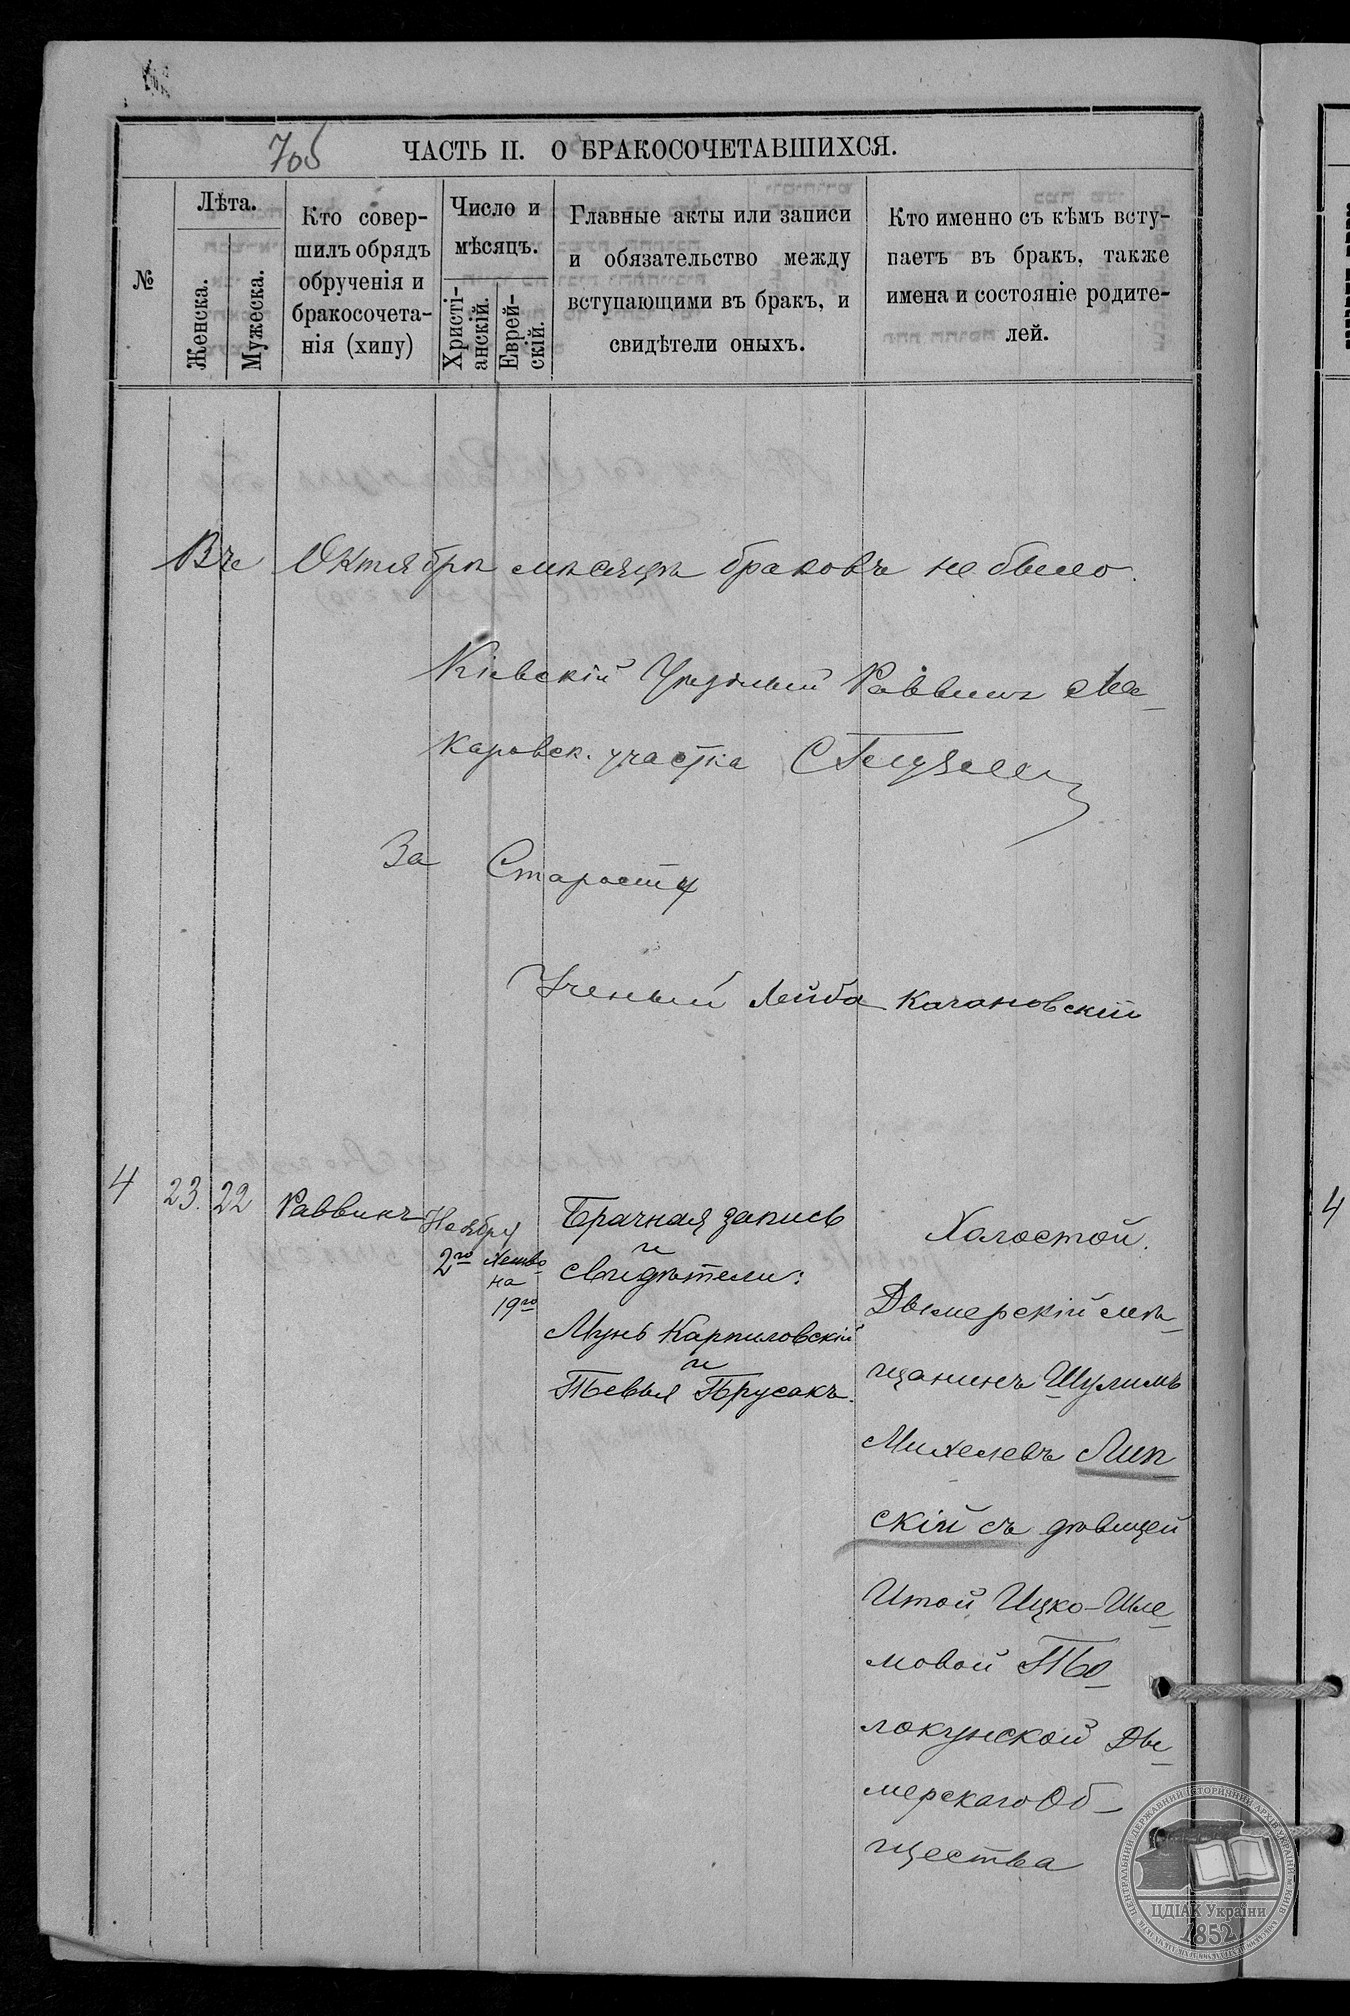 705
ЧАСТЬ II. О БРАКОСОЧЕТАВШИХСЯ.
№
Лѣта.
Женска.
Мужеска.
Кто совер-
шилъ обрядъ
обрученія и
бракосочета-
нія (хипу)
Число и
мѣсяцъ.
Христі-
анскій.
Еврей-
скій.
Главные акты или записи
и обязательство между
вступающими въ бракъ, и
свидѣтели оныхъ.
Кто именно съ кѣмъ всту-
паетъ въ бракъ, также
имена и состояніе родите-
лей.
Въ Октябрѣ мѣсяцѣ браковъ не было.
Кіевскій Уѣздный Раввинъ Ма-
каровск. участка
За Старосту
Ученый Лейба Качановскій
4
23. 22
Раввинъ
Ноября
2го
Хешво-
на
19го
Брачная запись
и
свидѣтели:
Мунь Карпиловскій
и
Тевья Брусакъ.
Холостой.
Дымерскій мѣ-
щанинъ Шулимъ
Михелевъ Лип
скій съ дѣвицей
Итой Ицко-Шле-
мовой То-
локунской Ды-
мерскаго Об-
щества
4
ЦЕНТРАЛЬНИЙ ДЕРЖАВНИЙ ІСТОРИЧНИЙ АРХІВ УКРАЇНИ
ЦДІАК України
1852